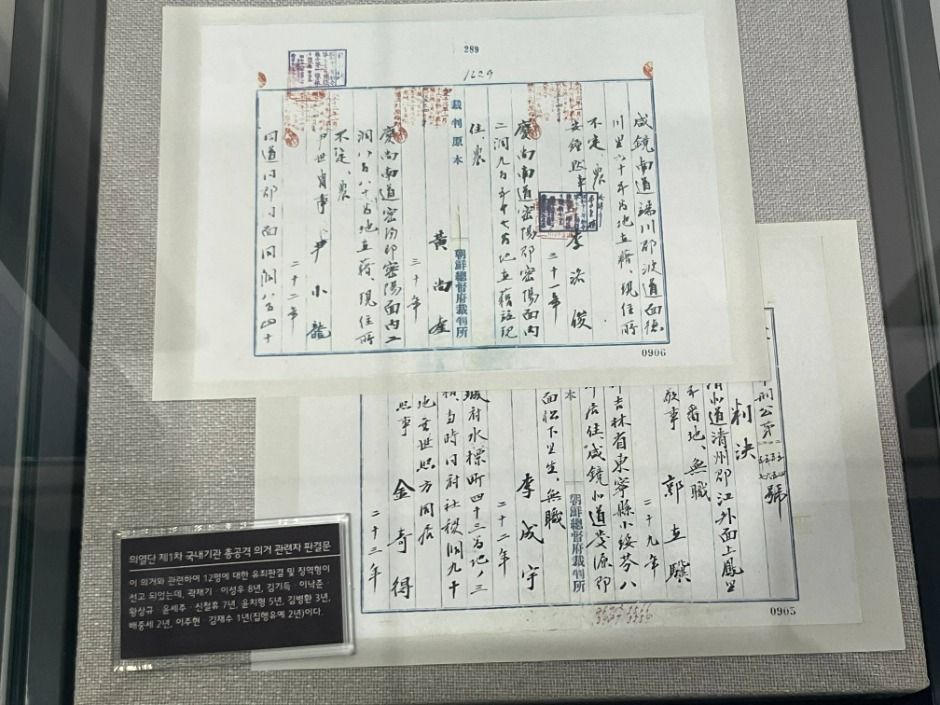 289
1629
咸鏡南道端川郡波道面德
川里六十 地在籍、現住所
不定、農
安鍾默事 李洛俊
三十一年
慶尚南道密陽郡密陽面內
二洞九百五十七番地在籍現
住 農
裁判原本
朝鮮總督府裁判所
黃尚奎
三十 年
慶尚南道密陽郡密陽面內二
洞八百八十番地在籍、現住所
不定、農
尹世胄事 尹小龍
二十二年
同道同郡同面同洞八百四十
0906
刑公第 號
判決
清北道清州郡江外面上鳳里
番地、無職
敬事 郭在驥
二十九年
吉林省東寧縣小綏芬八
居住、咸鏡北道慶源郡
面松下里生、無職
本
朝鮮總督府裁判所
李成宇
二十二年
城府水標町四十三番地ノ三
當時同府社稷洞九十
地 世熙方同居
熙事 金奇得
二十三年
0905
의열단 제1차 국내기관 총공격 의거 관련자 판결문
이 의거와 관련하여 12명에 대한 유죄판결 및 징역형이
선고 되었는데, 곽재기 · 이성우 8년, 김기득 · 이낙준 ·
황상규 · 윤세주 · 신철휴 7년, 윤치형 5년, 김병환 3년,
배중세 2년, 이주현 · 김재수 1년(집행유예 2년)이다.